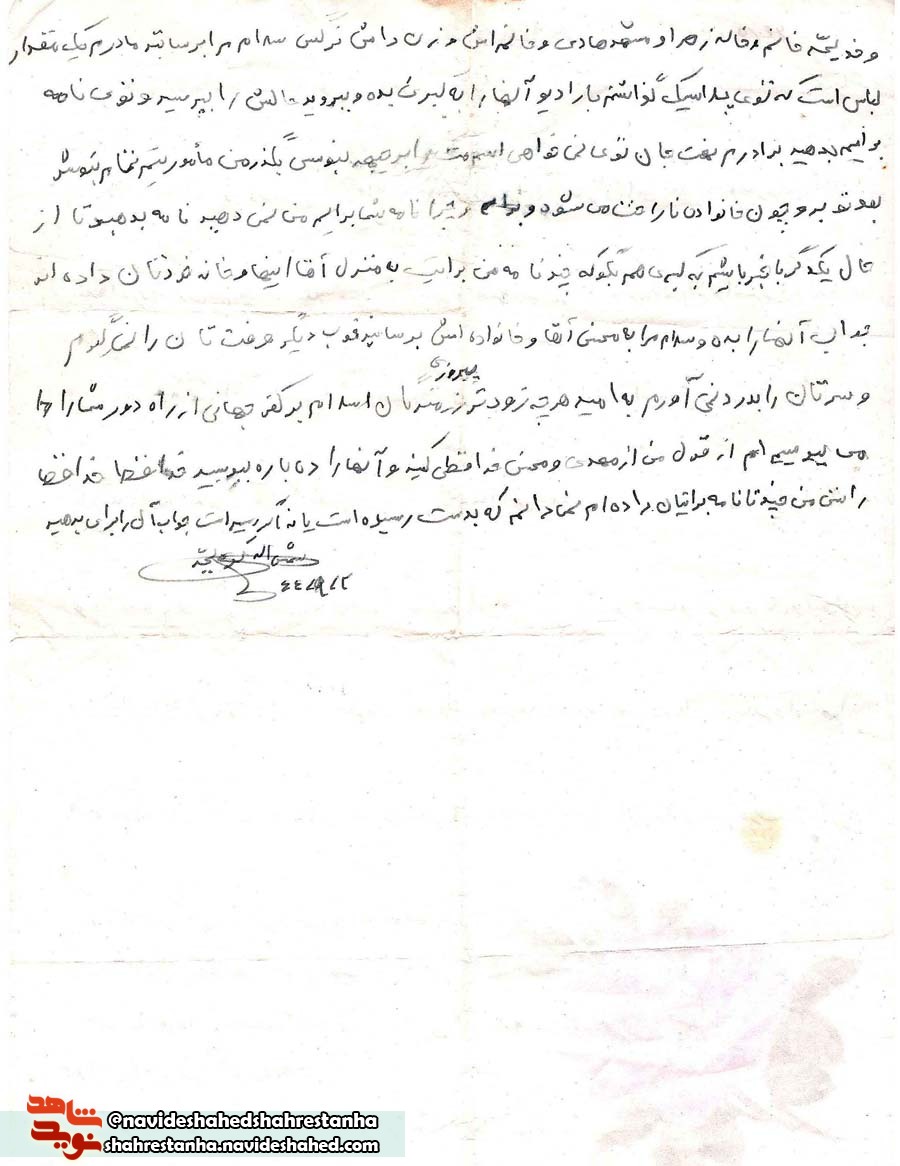 و خدیجه خانم و خاله زهرا و مشهد هادی و خانم اش و زن دامش نرگس سلام مرا برسانید مادرم یک مقدار
لباس است که توی پلاستیک گذاشتم با رادیو آنها را به کبری بده و بروید حالش را بپرسید و توی نامه
برایم بدهید برادرم نعمت جان تو نمی خواهی اسمت را جبهه بنویسی بگذر من مأموریتم تمام بشود
بعد تو برو چون خانواده ناراحت می شود و چرا نامه شما برایم من نمی دهید نامه بدهید تا از
حال یکدیگر با خبر باشیم به کبری هم بگو که چند نامه من برایت به منزل آقا اینها و خانه خودتان داده اند
جواب آنها را بده و سلام مرا به محسن آقا و خانواده اش برسانید خوب دیگر وقت تان را نمی گیرم
و سرتان را بدرد نمی آورم به امید هر چه زودتر پیروزی رزمندگان اسلام بر کفر جهانی از راه دور شما را
می بوسم از قول من از مهدی و محسن خداحافظی کنید و آنها را دوباره ببوسید خداحافظ خداحافظ
راستی من چند تا نامه برایتان داده ام نمی دانم که بدست رسیده است یا نه اگر رسیده است جواب آن را برای بدهید
شمس اله
©navideshahedshahrestanha
shahrestanha.navideshahed.com
شاهد
نوید